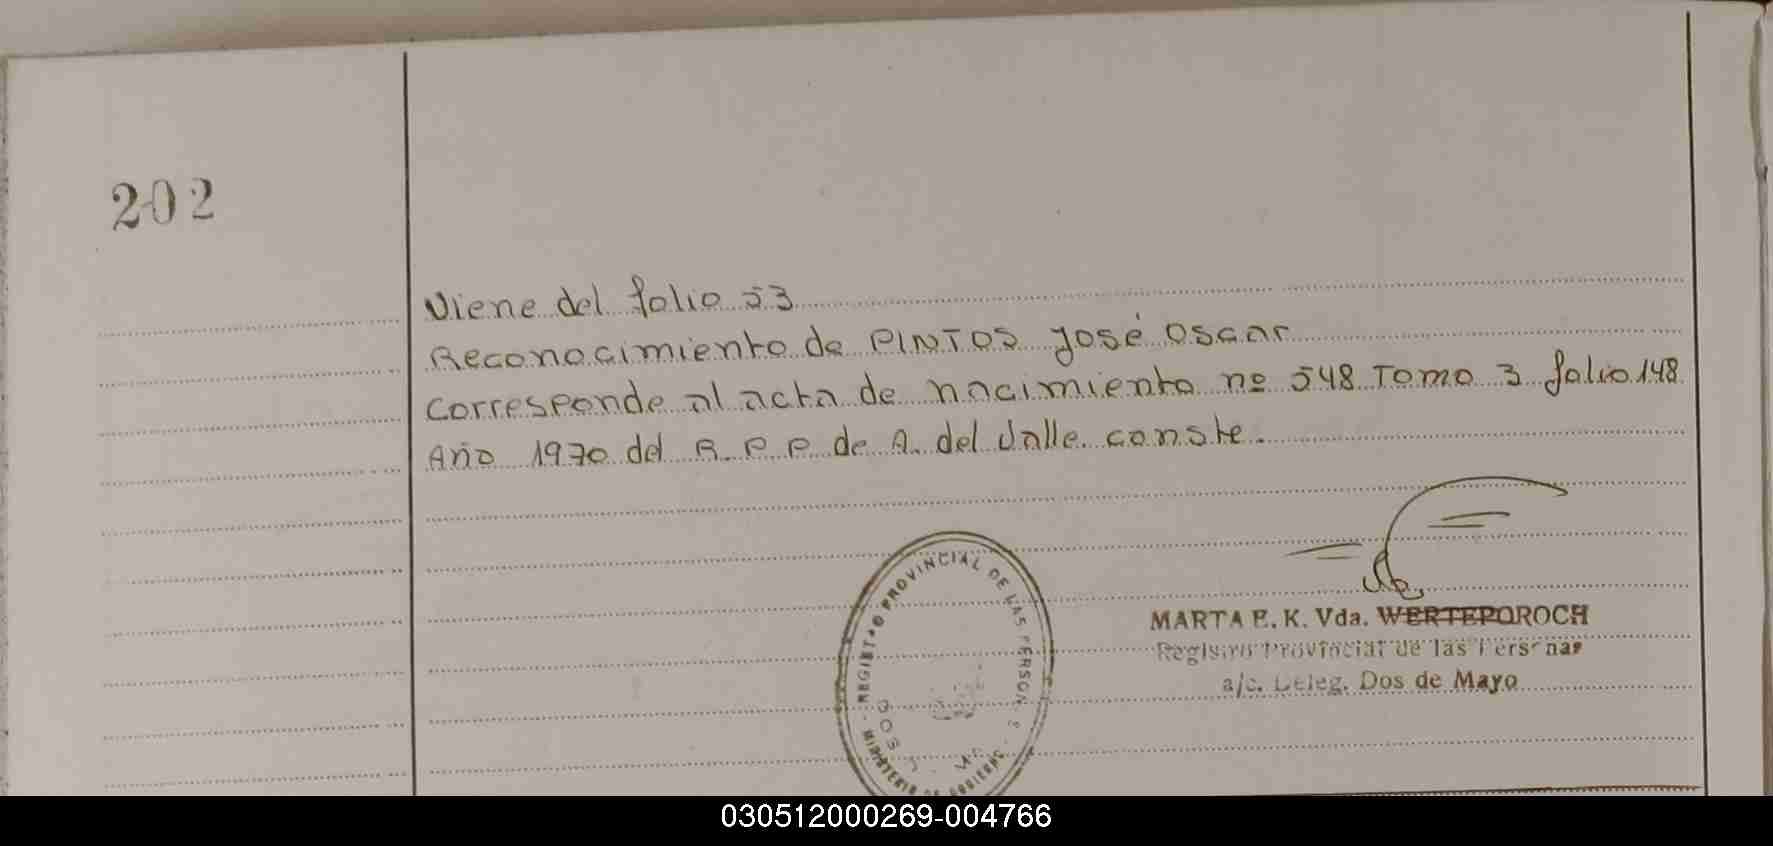 202
Viene del folio 53
Reconocimiento de PINTOS José Oscar
corresponde al acta de nacimiento nº 548 Tomo 3 folio 148
Año 1970 del R. P. P. de A. del Valle. conste.
REGISTRO PROVINCIAL DE LAS PERSON
MINISTERIO DE GOBIERNO
DOS
MARTA E. K. Vda. WERTEPOROCH
Registro Provincial de las Personas
a/c. Deleg. Dos de Mayo
030512000269-004766